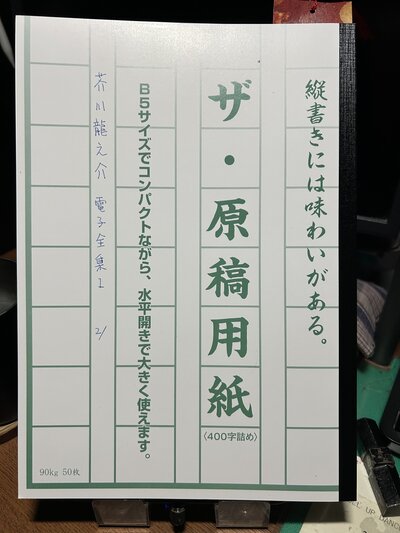 縦書きには味わいがある。
ザ・原稿用紙
〈400字詰め〉
B5サイズでコンパクトながら、水平開きで大きく使えます。
芥川龍之介 電子全集I 2/
90kg 50枚